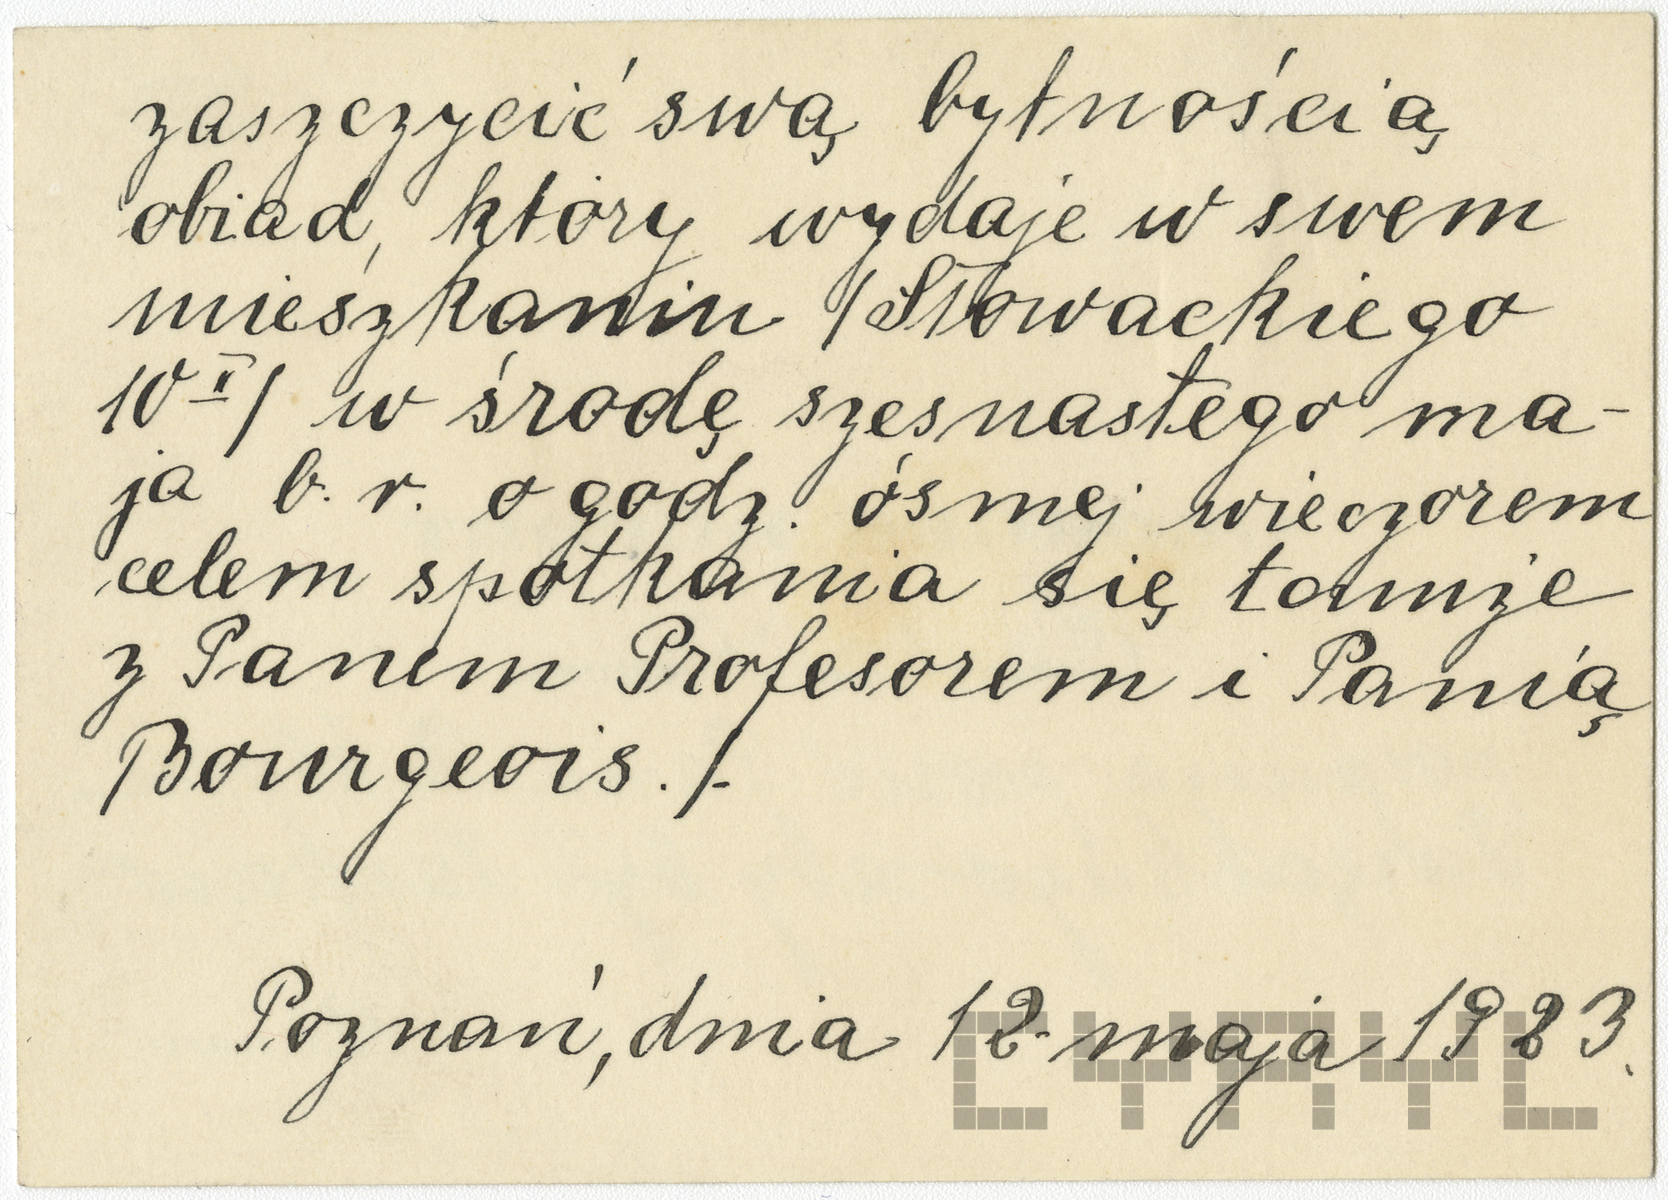 zaszczycić swą bytnością
obiad, który wydaje w swem
mieszkaniu /Słowackiego
10 II/ w środę szesnastego ma-
ja b. r. o godz. ósmej wieczorem
celem spotkania się tamże
z Panem Profesorem i Panią
Bourgeois. /-
Poznań, dnia 12 maja 1923.
CYRYL